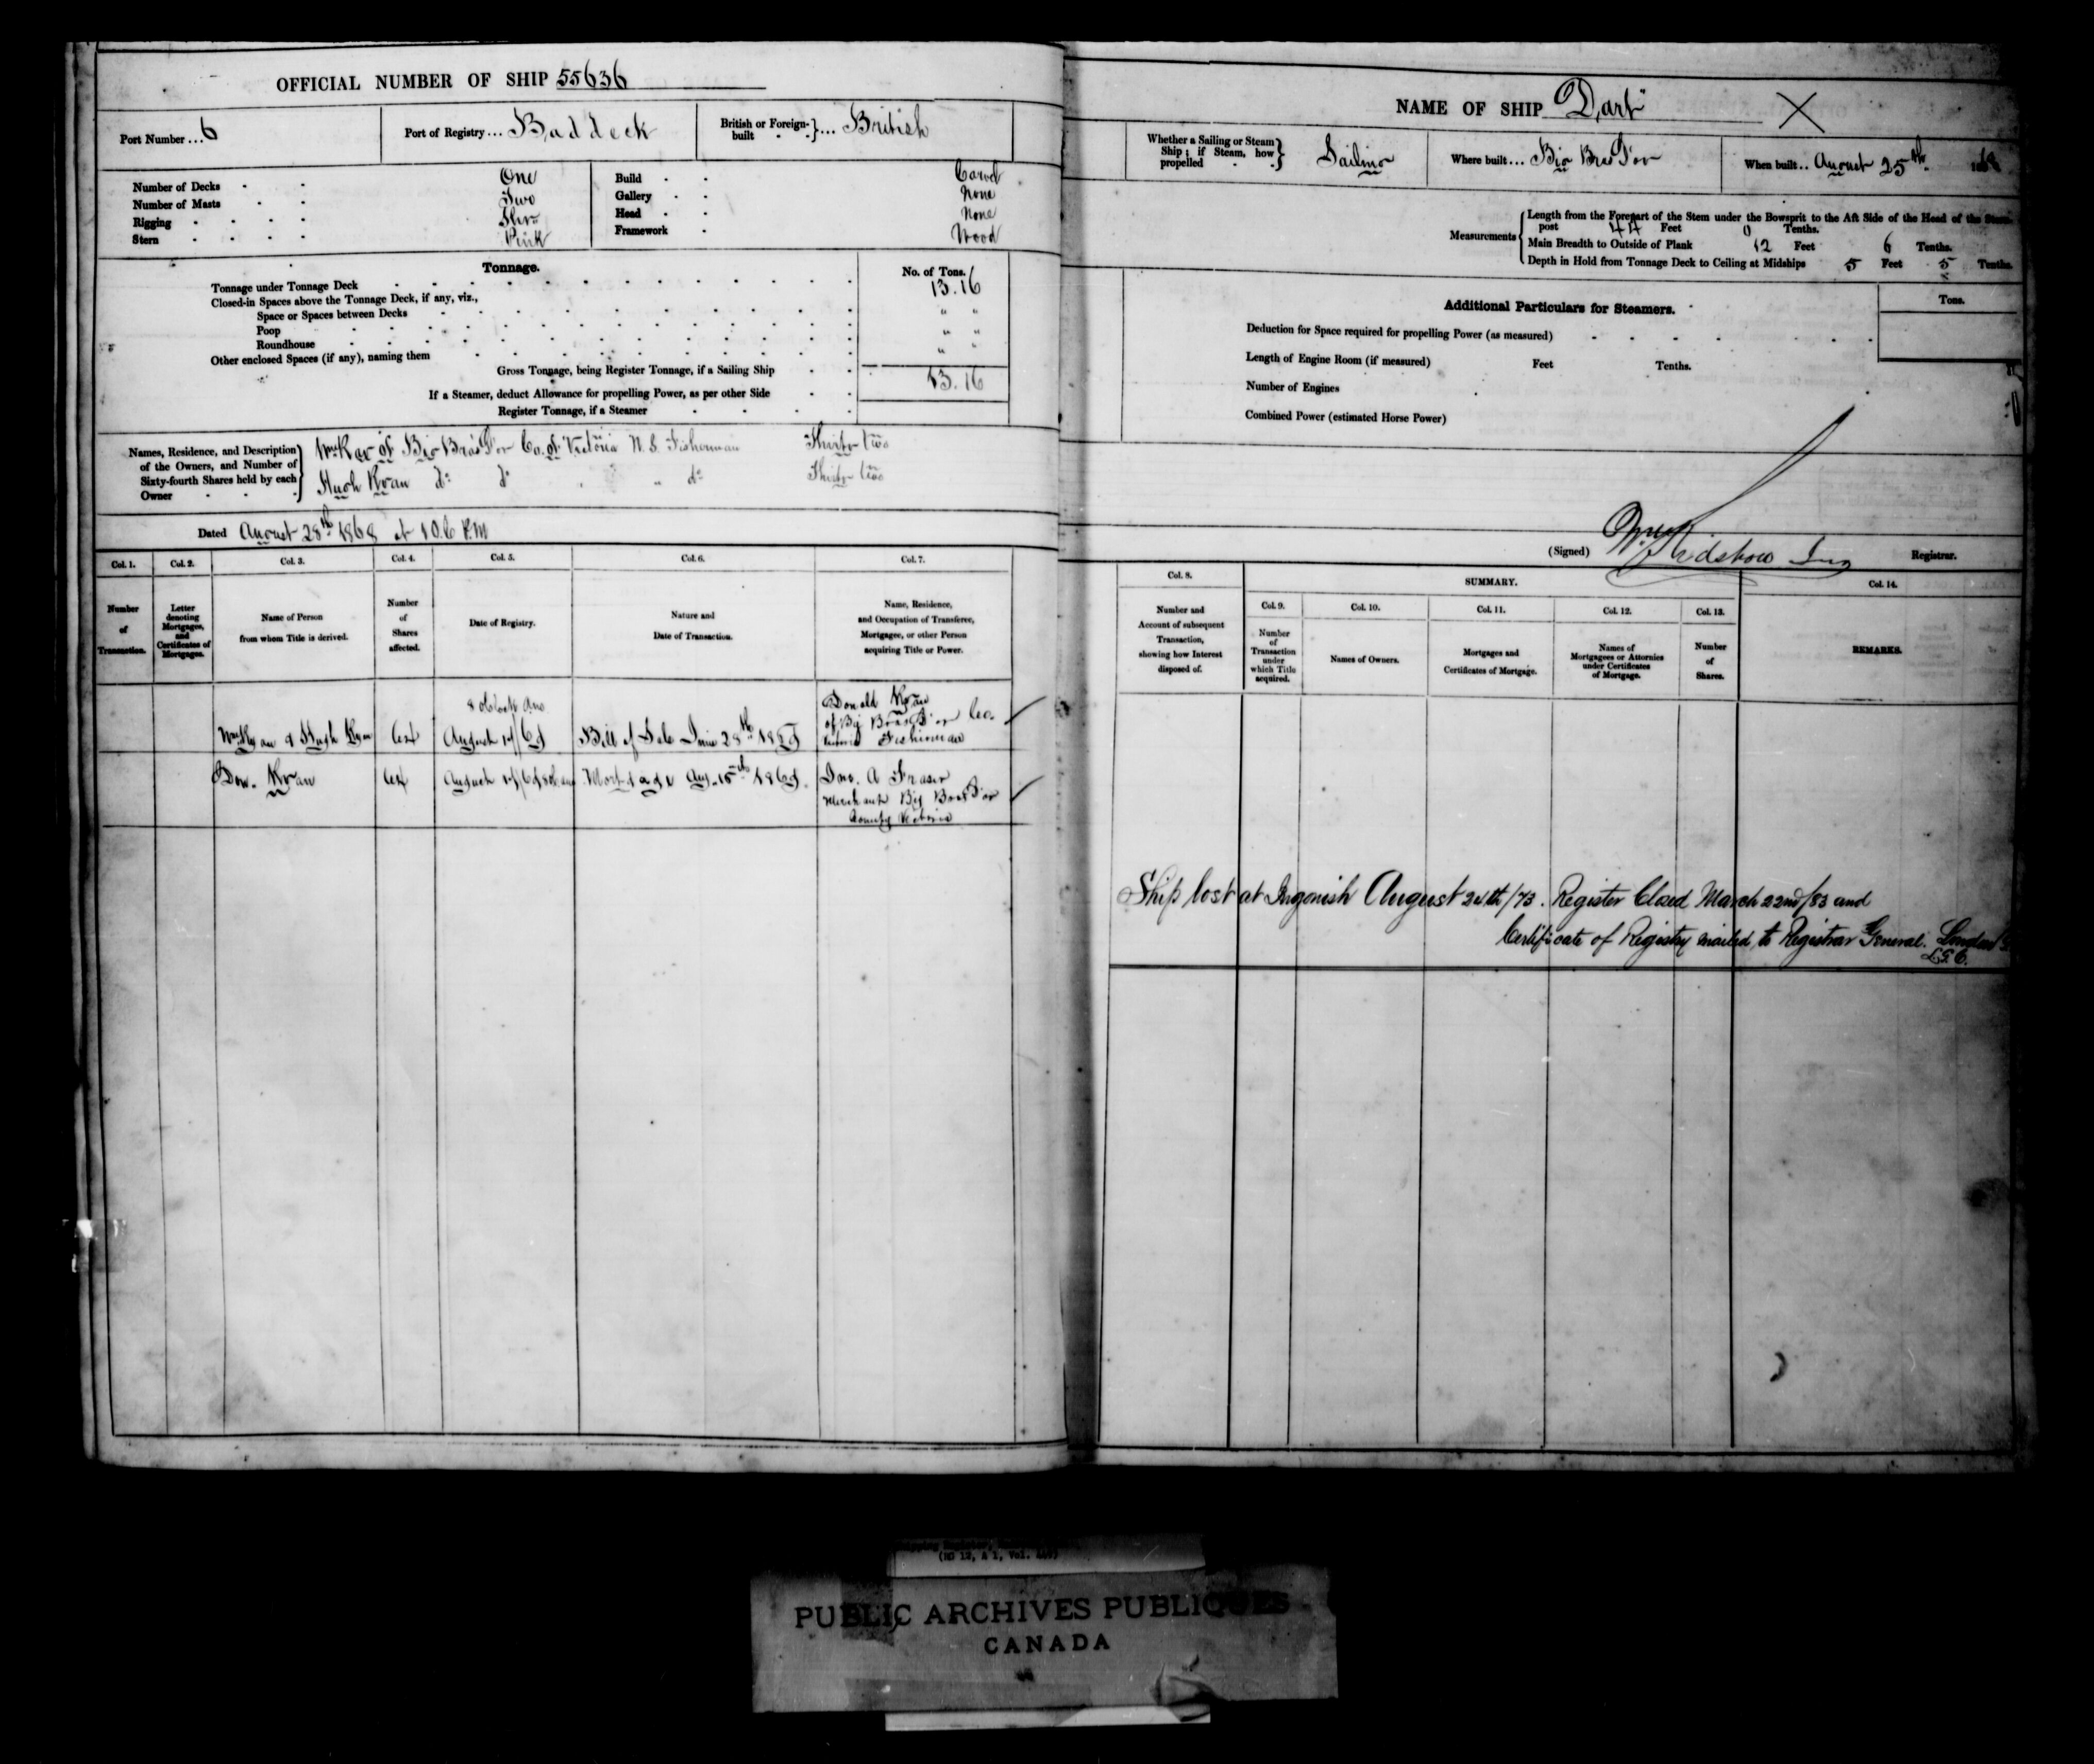 OFFICIAL NUMBER OF SHIP 55636
Port Number ... 6
Port of Registry ... Baddeck
British or Foreign-built } ... British
Number of Decks One
Number of Masts Two
Rigging Schr
Stern Pink
Build Carvel
Gallery None
Head None
Framework Wood
Tonnage.
No. of Tons.
Tonnage under Tonnage Deck 13.16
Closed-in Spaces above the Tonnage Deck, if any, viz.,
Space or Spaces between Decks " "
Poop " "
Roundhouse " "
Other enclosed Spaces (if any), naming them
Gross Tonnage, being Register Tonnage, if a Sailing Ship 13.16
If a Steamer, deduct Allowance for propelling Power, as per other Side
Register Tonnage, if a Steamer
Names, Residence, and Description of the Owners, and Number of Sixty-fourth Shares held by each Owner
of Big Bras D'or Co. of Victoria N.S. Fisherman Thirty two
Hugh Ryan do do " do Thirty two
Dated August 28th 1868 at P.M
Col. 1. Col. 2. Col. 3. Col. 4. Col. 5. Col. 6. Col. 7.
Number of Transaction.
Letter denoting Mortgages, and Certificates of Mortgages.
Name of Person from whom Title is derived.
Number of Shares affected.
Date of Registry.
Nature and Date of Transaction.
Name, Residence, and Occupation of Transferee, Mortgagee, or other Person acquiring Title or Power.
Wm Ryan & Hugh Ryan
8 oclock
August 17/69
Bill of Sale June 28th
Donald Ryan
of Big Bras D'or Co.
Fisherman
Don. Ryan
August 17/69
Mortgage Aug. 15th 1869.
A Fraser
Merchant Big Bras D'or
County Victoria
NAME OF SHIP "Dart"
X
Whether a Sailing or Steam Ship; if Steam, how propelled } Sailing
Where built ... Big Bras D'or
When built .. August 25th 1868
Measurements
Length from the Forepart of the Stem under the Bowsprit to the Aft Side of the Head of the Stern-
post 44 Feet 0 Tenths.
Main Breadth to Outside of Plank 12 Feet 6 Tenths.
Depth in Hold from Tonnage Deck to Ceiling at Midships 5 Feet 5 Tenths.
Additional Particulars for Steamers.
Tons.
Deduction for Space required for propelling Power (as measured)
Length of Engine Room (if measured) Feet Tenths.
Number of Engines
Combined Power (estimated Horse Power)
(Signed) Registrar.
Col. 8.
SUMMARY.
Col. 14.
Col. 9. Col. 10. Col. 11. Col. 12. Col. 13.
Number and Account of subsequent Transaction, showing how Interest disposed of.
Number of Transaction under which Title acquired.
Names of Owners.
Mortgages and Certificates of Mortgage.
Names of Mortgagees or Attornies under Certificates of Mortgage.
Number of Shares.
REMARKS.
Ship lost at Ingonish August 24th/73. Register Closed March 22nd/83 and
Certificate of Registry mailed to Registrar General. London
L.G.C.
PUBLIC ARCHIVES PUBLIQUES
CANADA